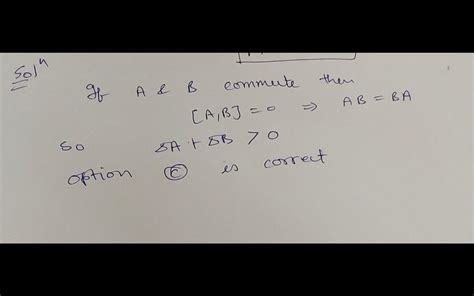 Solⁿ
If A & B commute then
[A,B] = 0 ⇒ AB = BA
So ΔA + ΔB > 0
option ⓒ is correct